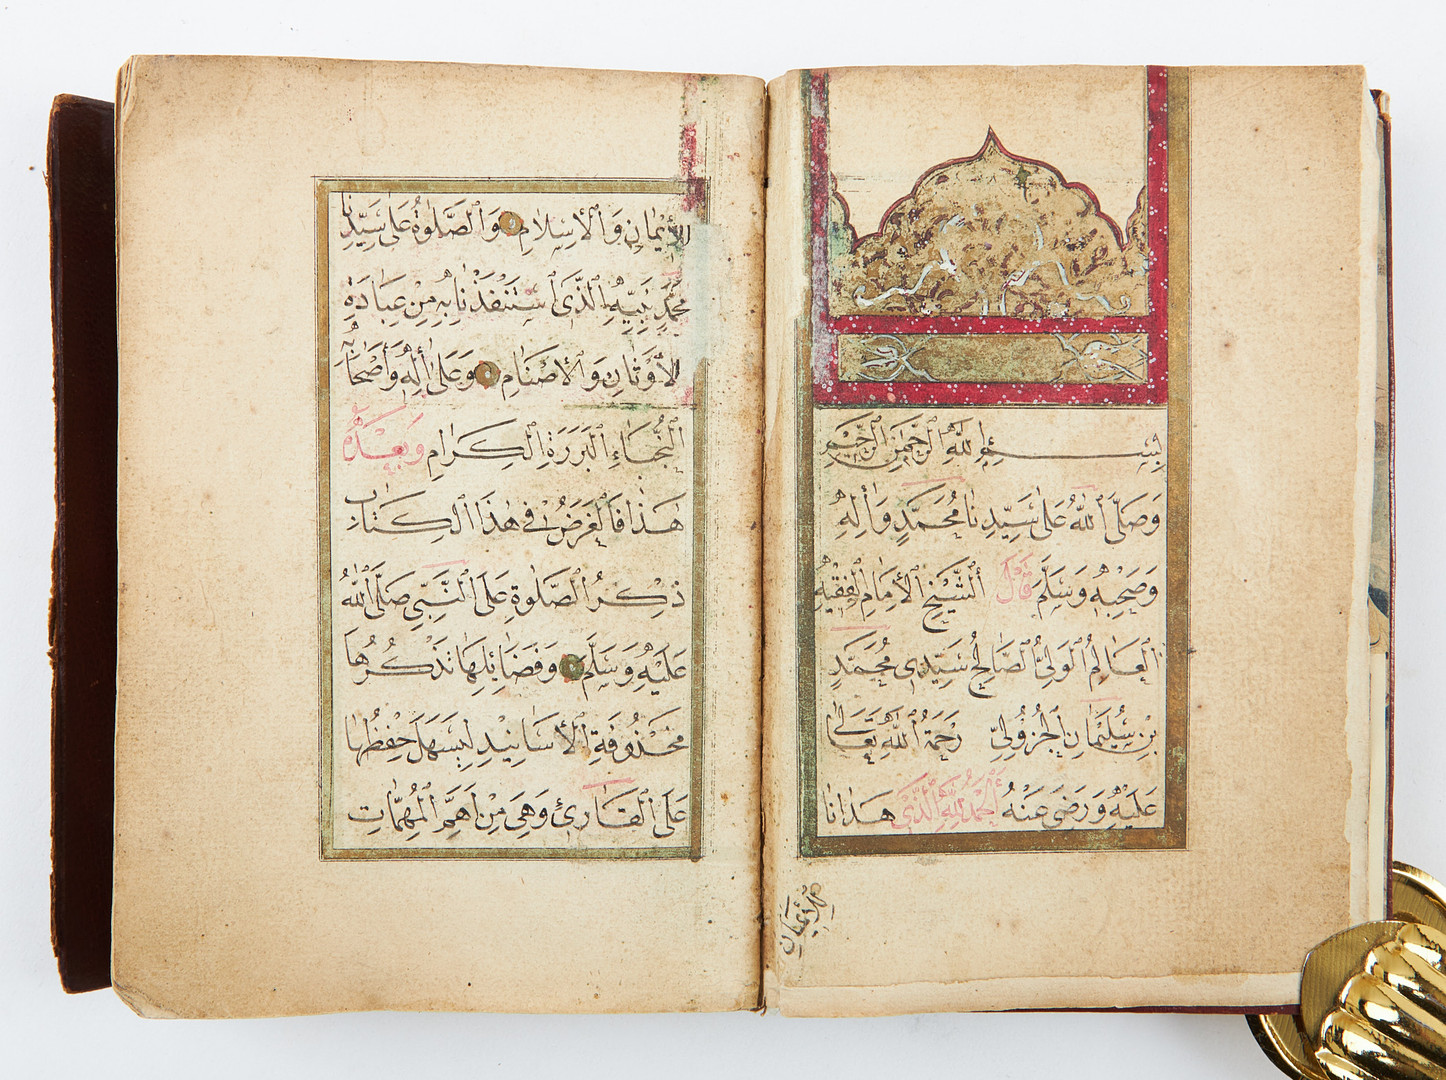 بِسْمِ اللّٰهِ الرَّحْمٰنِ الرَّحِيْمِ
وَصَلَّى اللّٰهُ عَلٰى سَيِّدِنَا مُحَمَّدٍ وَاٰلِهِ
وَصَحْبِهِ وَسَلَّمَ قَالَ الشَّيْخُ الْاِمَامُ الْفَقِيْهُ
الْعَالِمُ الْوَلِيُّ الصَّالِحُ سَيِّدِى مُحَمَّدِ
بْنِ سُلَيْمَانَ الْجَزُوْلِيِّ رَحْمَةُ اللّٰهِ تَعَالٰى
عَلَيْهِ وَرَضِىَ عَنْهُ اَلْحَمْدُ لِلّٰهِ الَّذِىْ هَدَانَا
لِلْاِيْمَانِ
لِلْاِيْمَانِ وَالْاِسْلَامِ وَالصَّلٰوةُ عَلٰى سَيِّدِنَا
مُحَمَّدٍ نَبِيِّهِ الَّذِى اسْتَنْقَذَنَا بِهِ مِنْ عِبَادَةِ
الْاَوْثَانِ وَالْاَصْنَامِ وَعَلٰى اٰلِهِ وَاَصْحَابِهِ
النُّجَبَاءِ الْبَرَرَةِ الْكِرَامِ وَبَعْدُ
هٰذَا فَالْغَرَضُ فِى هٰذَا الْكِتَابِ
ذِكْرُ الصَّلٰوةِ عَلَى النَّبِيِّ صَلَّى اللّٰهُ
عَلَيْهِ وَسَلَّمَ وَفَضَائِلِهَا نَذْكُرُهَا
مَحْذُوفَةَ الْاَسَانِيْدِ لِيَسْهَلَ حِفْظُهَا
عَلَى الْقَارِئِ وَهِىَ مِنْ اَهَمِّ الْمُهِمَّاتِ